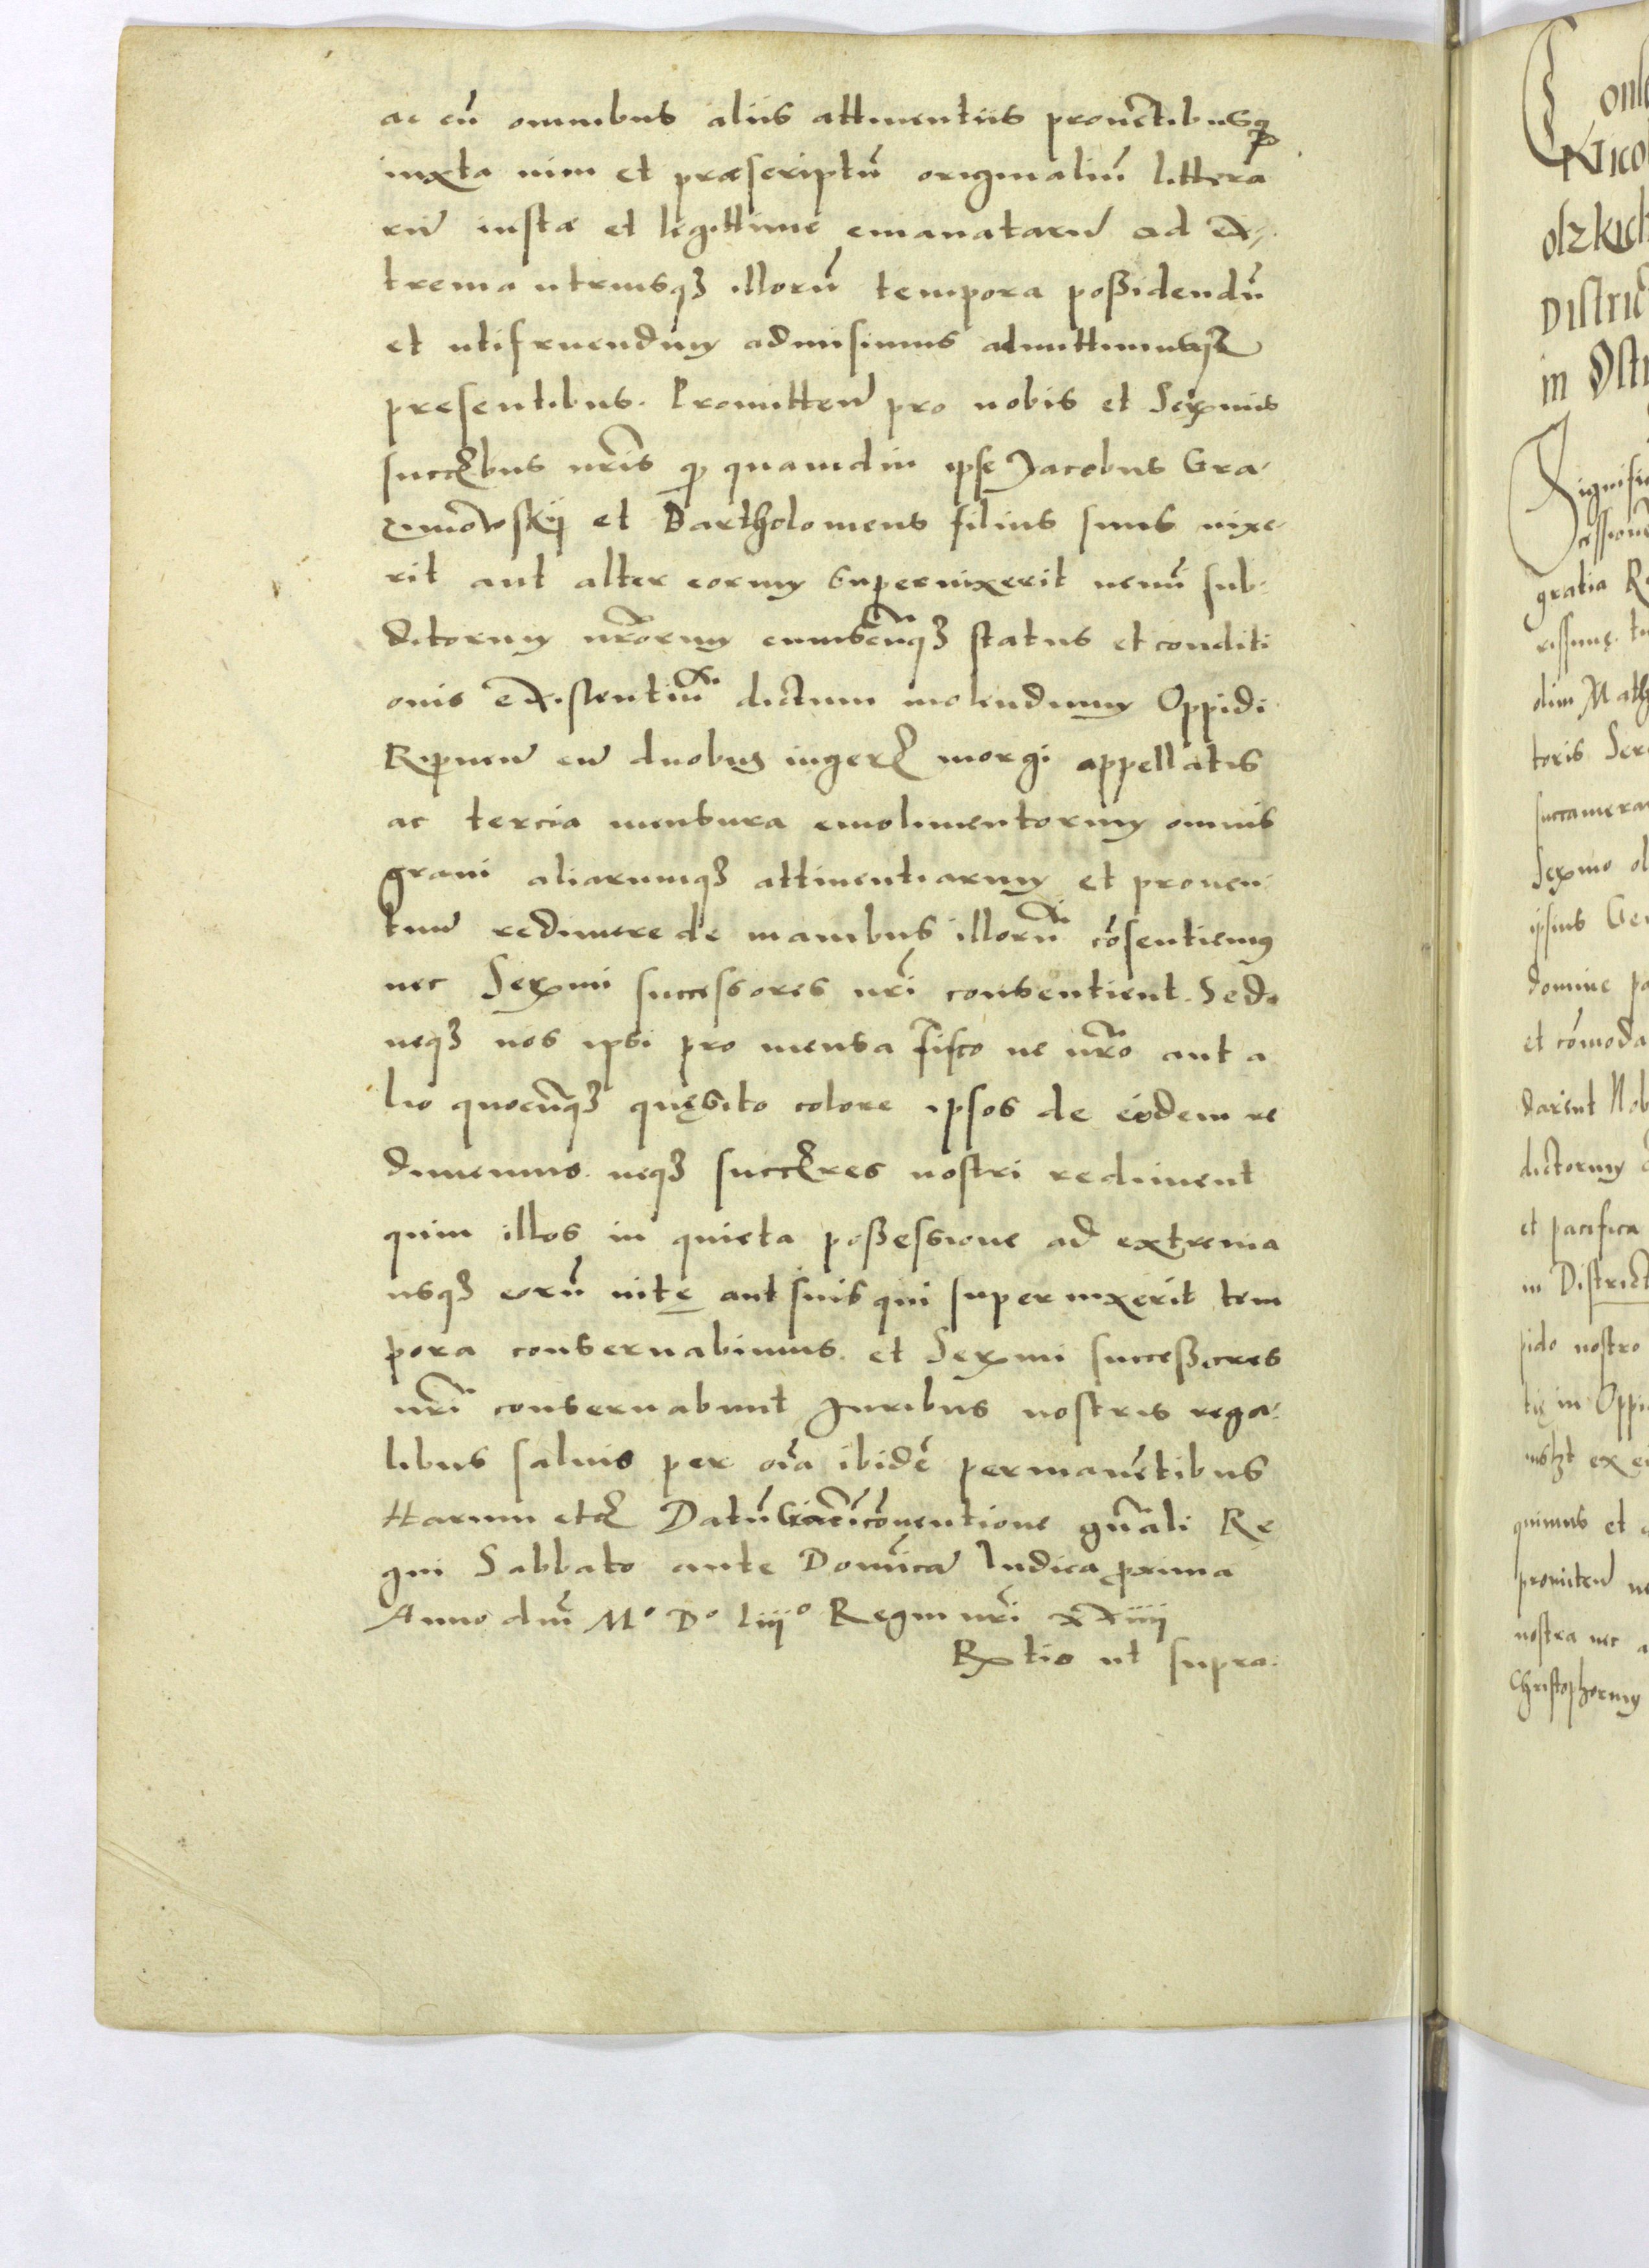 ac cū omnibus aliis attinentiis proventibusq
iuxta vim et præscriptū originaliū littera
rū iustæ et legittime emanatarū ad ex
trema utriusq3 illorū tempora possidendū
et utifruendum admisimus admittimusq3
presentibus. Promitten pro nobis et Serᵐis
succ̄bus nr̄is q quamdiu ipse Jacobus Gra
nowskij et Bartholomeus filius suus vixe
rit aut alter eorum supervixerit nemī sub
ditorum nr̄orum cuiuscūq3 status et conditi
onis existentiū dictum molendinum Oppidi
cū duobus iuger morgi appellatis
ac tercia mensura emolumentorum omnis
grani aliarumq3 attinentiarum et proven
tuū redimere de manibus illorū cōsentiemus
nec Serᵐi successores nr̄i consentient. Sed
neq3 nos ipsi pro mensa fisco ve nr̄o aut a
lio quocūq3 quęsito colore ipsos de eodem re
dimemus. neq3 succ̄res nostri rediment
quin illos in quieta possessione ad extrema
usq3 eorū vitę aut suis qui supervixerit tem
pora conservabimus. et Serᵐi successores
nr̄i conservabunt Juribus nostris rega
libus salvis per oīa ibidē permanētibus
Harum etc Datū Cracī cōventione gn̄ali Re
gni Sabbato ante Domīca Iudica proxima
Anno dnī Mº Dº liiijº Regni nr̄i xxiiij
Rtio ut supra.
Nico
olzkich
Distric
in Ost
gratia R
olim Math
toris Ser
Serᵐo ol
ipsius Ge
domine pa
et cōmoda
darent Nob
dictorum
et pacifica
in District
pido nostro
tię in Oppi
quimus et
nostra nec a
Christophorum